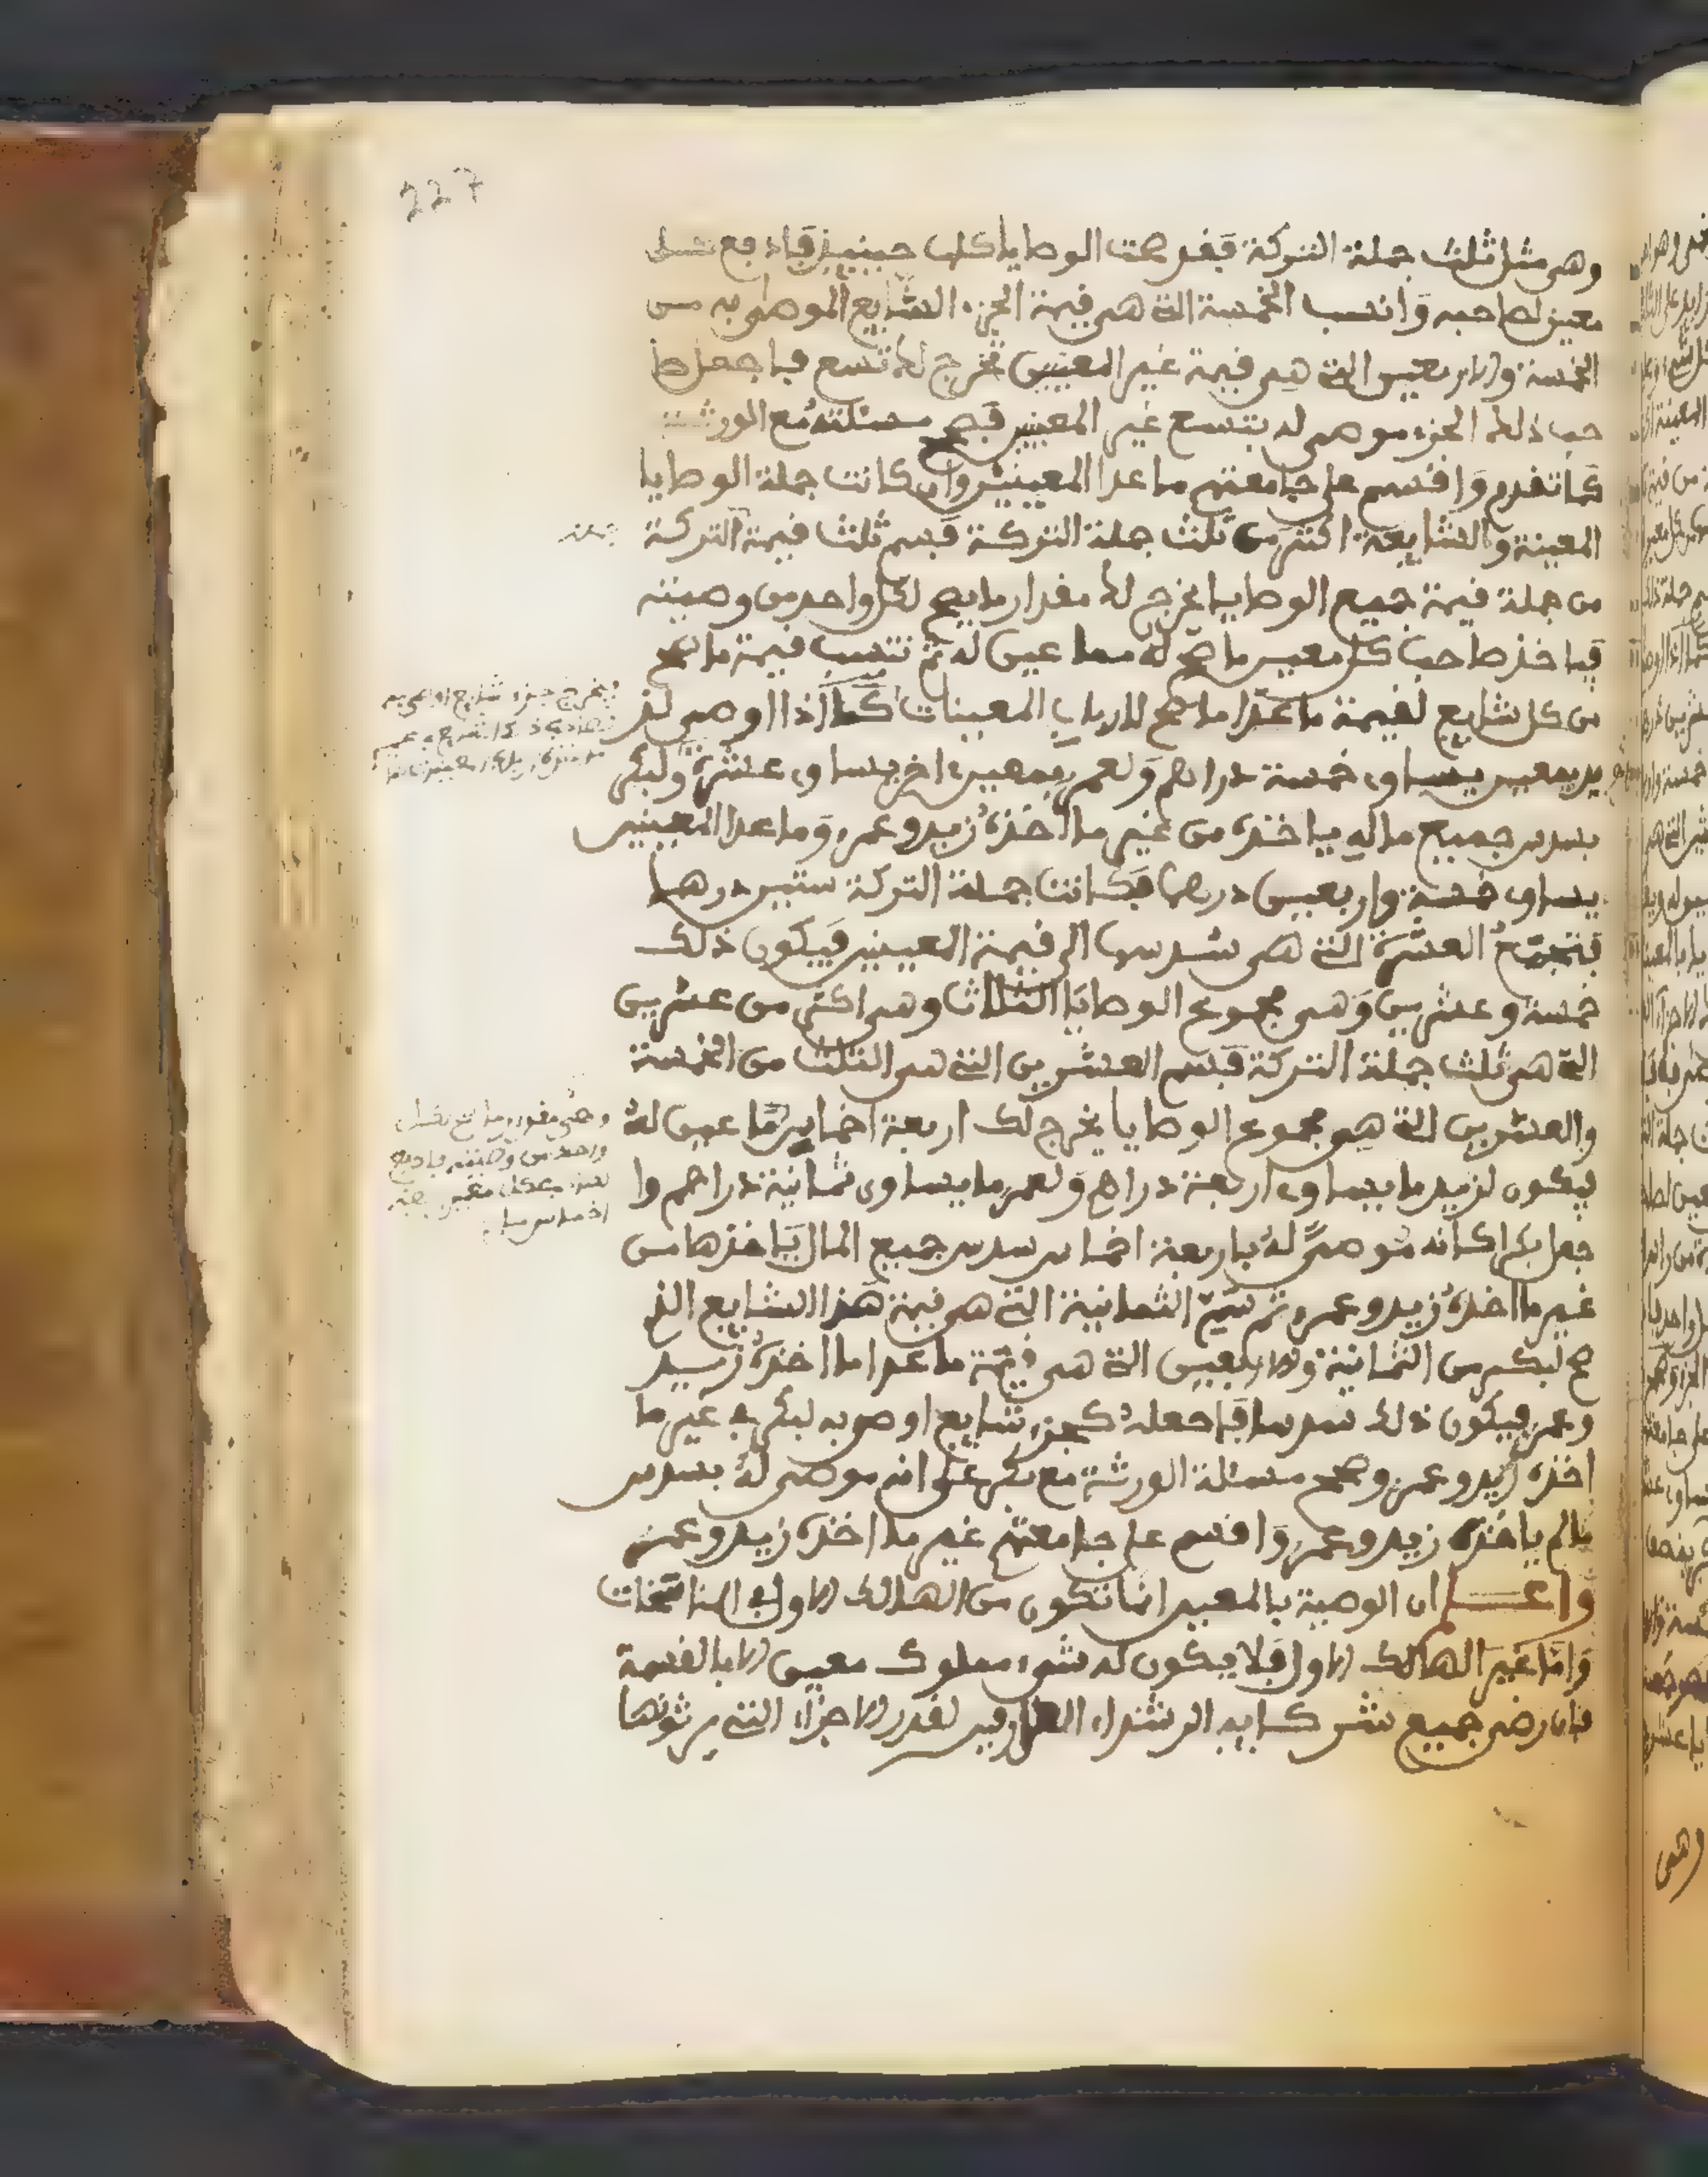 227
وهي مثل ثلث جملة التركة فقد صحت الوصايا كلها حينيذ فادفع كل
معين لصاحبه وانسب الخمسة التي هي قيمة الجزء الشايع الموصى به من
الخمسة والاربعين التي هي قيمة غير المعينين يخرج لك تسع فاجعل صا
حب ذلك الجزء موصى له بتسع غير المعينين فصحح مسئلته مع الورثة
كما تقدم واقسم على جامعتهم ما عدا المعينين وان كانت جملة الوصايا
المعينة والشايعة اكثر من ثلث جملة التركة فسم ثلث قيمة التركة
من جملة قيمة جميع الوصايا يخرج لك مقدار ما يصح لكل واحد من وصيته
فياخذ صاحب كل معين ما صح له مما عين له ثم تنسب قيمة ما صح
من كل شايع لقيمة ما عدا ما صح لارباب المعينات كما اذا اوصى لز
يد بمعين يساوي خمسة دراهم ولعمر بمعين اخر يساوي عشرة ولبكر
بسدس جميع ماله ياخذه من غير ما اخذه زيد وعمر وما عدا المعينين
يساوي خمسة واربعين درهما فكانت جملة التركة ستين درهما
فتجمع العشرة التي هي سدسها الى قيمة المعينين فيكون ذلك
خمسة وعشرين وهي مجموع الوصايا الثلاث وهي اكثر من عشرين
التي هي ثلث جملة التركة فسم العشرين التي هي الثلث من الخمسة
والعشرين التي هي مجموع الوصايا يخرج لك اربعة اخماس ما عين له
فيكون لزيد ما يساوي اربعة دراهم ولعمر ما يساوي ثمانية دراهم وا
جعل بكرا كانه موصى له باربعة اخماس سدس جميع المال ياخذها من
غير ما اخذه زيد وعمر ثم سم الثمانية التي هي قيمة هذا الشايع الذي
صح لبكر من الثمانية والاربعين التي هي قيمة ما عدا ما اخذه زيد
وعمر فيكون ذلك سدسا فاجعله كجزء شايع اوصي به لبكر في غير ما
اخذه زيد وعمر وصحح مسئلة الورثة مع بكر على انه موصى له بسدس
ما لم ياخذه زيد وعمر واقسم على جامعتهم غير ما اخذه زيد وعمر
واعلم ان الوصية بالمعين انما تكون من الهالك الاول في المناسخات
واما غير الهالك الاول فلا يكون له شيء مملوك معين الا بالقسمة
فان رضي جميع شركايه الرشداء العارفين لقدر الاجزاء التي يرثونها
ويخرج جزء شايع اوصي به
وهي مقدار ما صح لكل
واحد من وصيته فادفع
اخماس
وهي